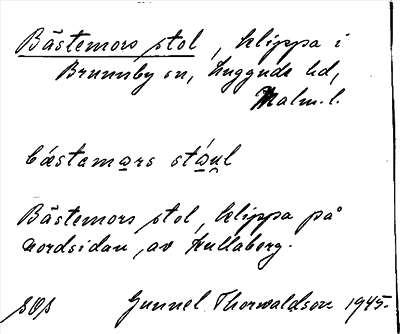 Bästemors stol, klippa i
Brunnby sn, Luggude hd,
Malm. l.
bástamɑrs stɑ́ul
Bästemors stol, klippa på
nordsidan, av Kullaberg.
Gunnel Thorwaldson 1945.